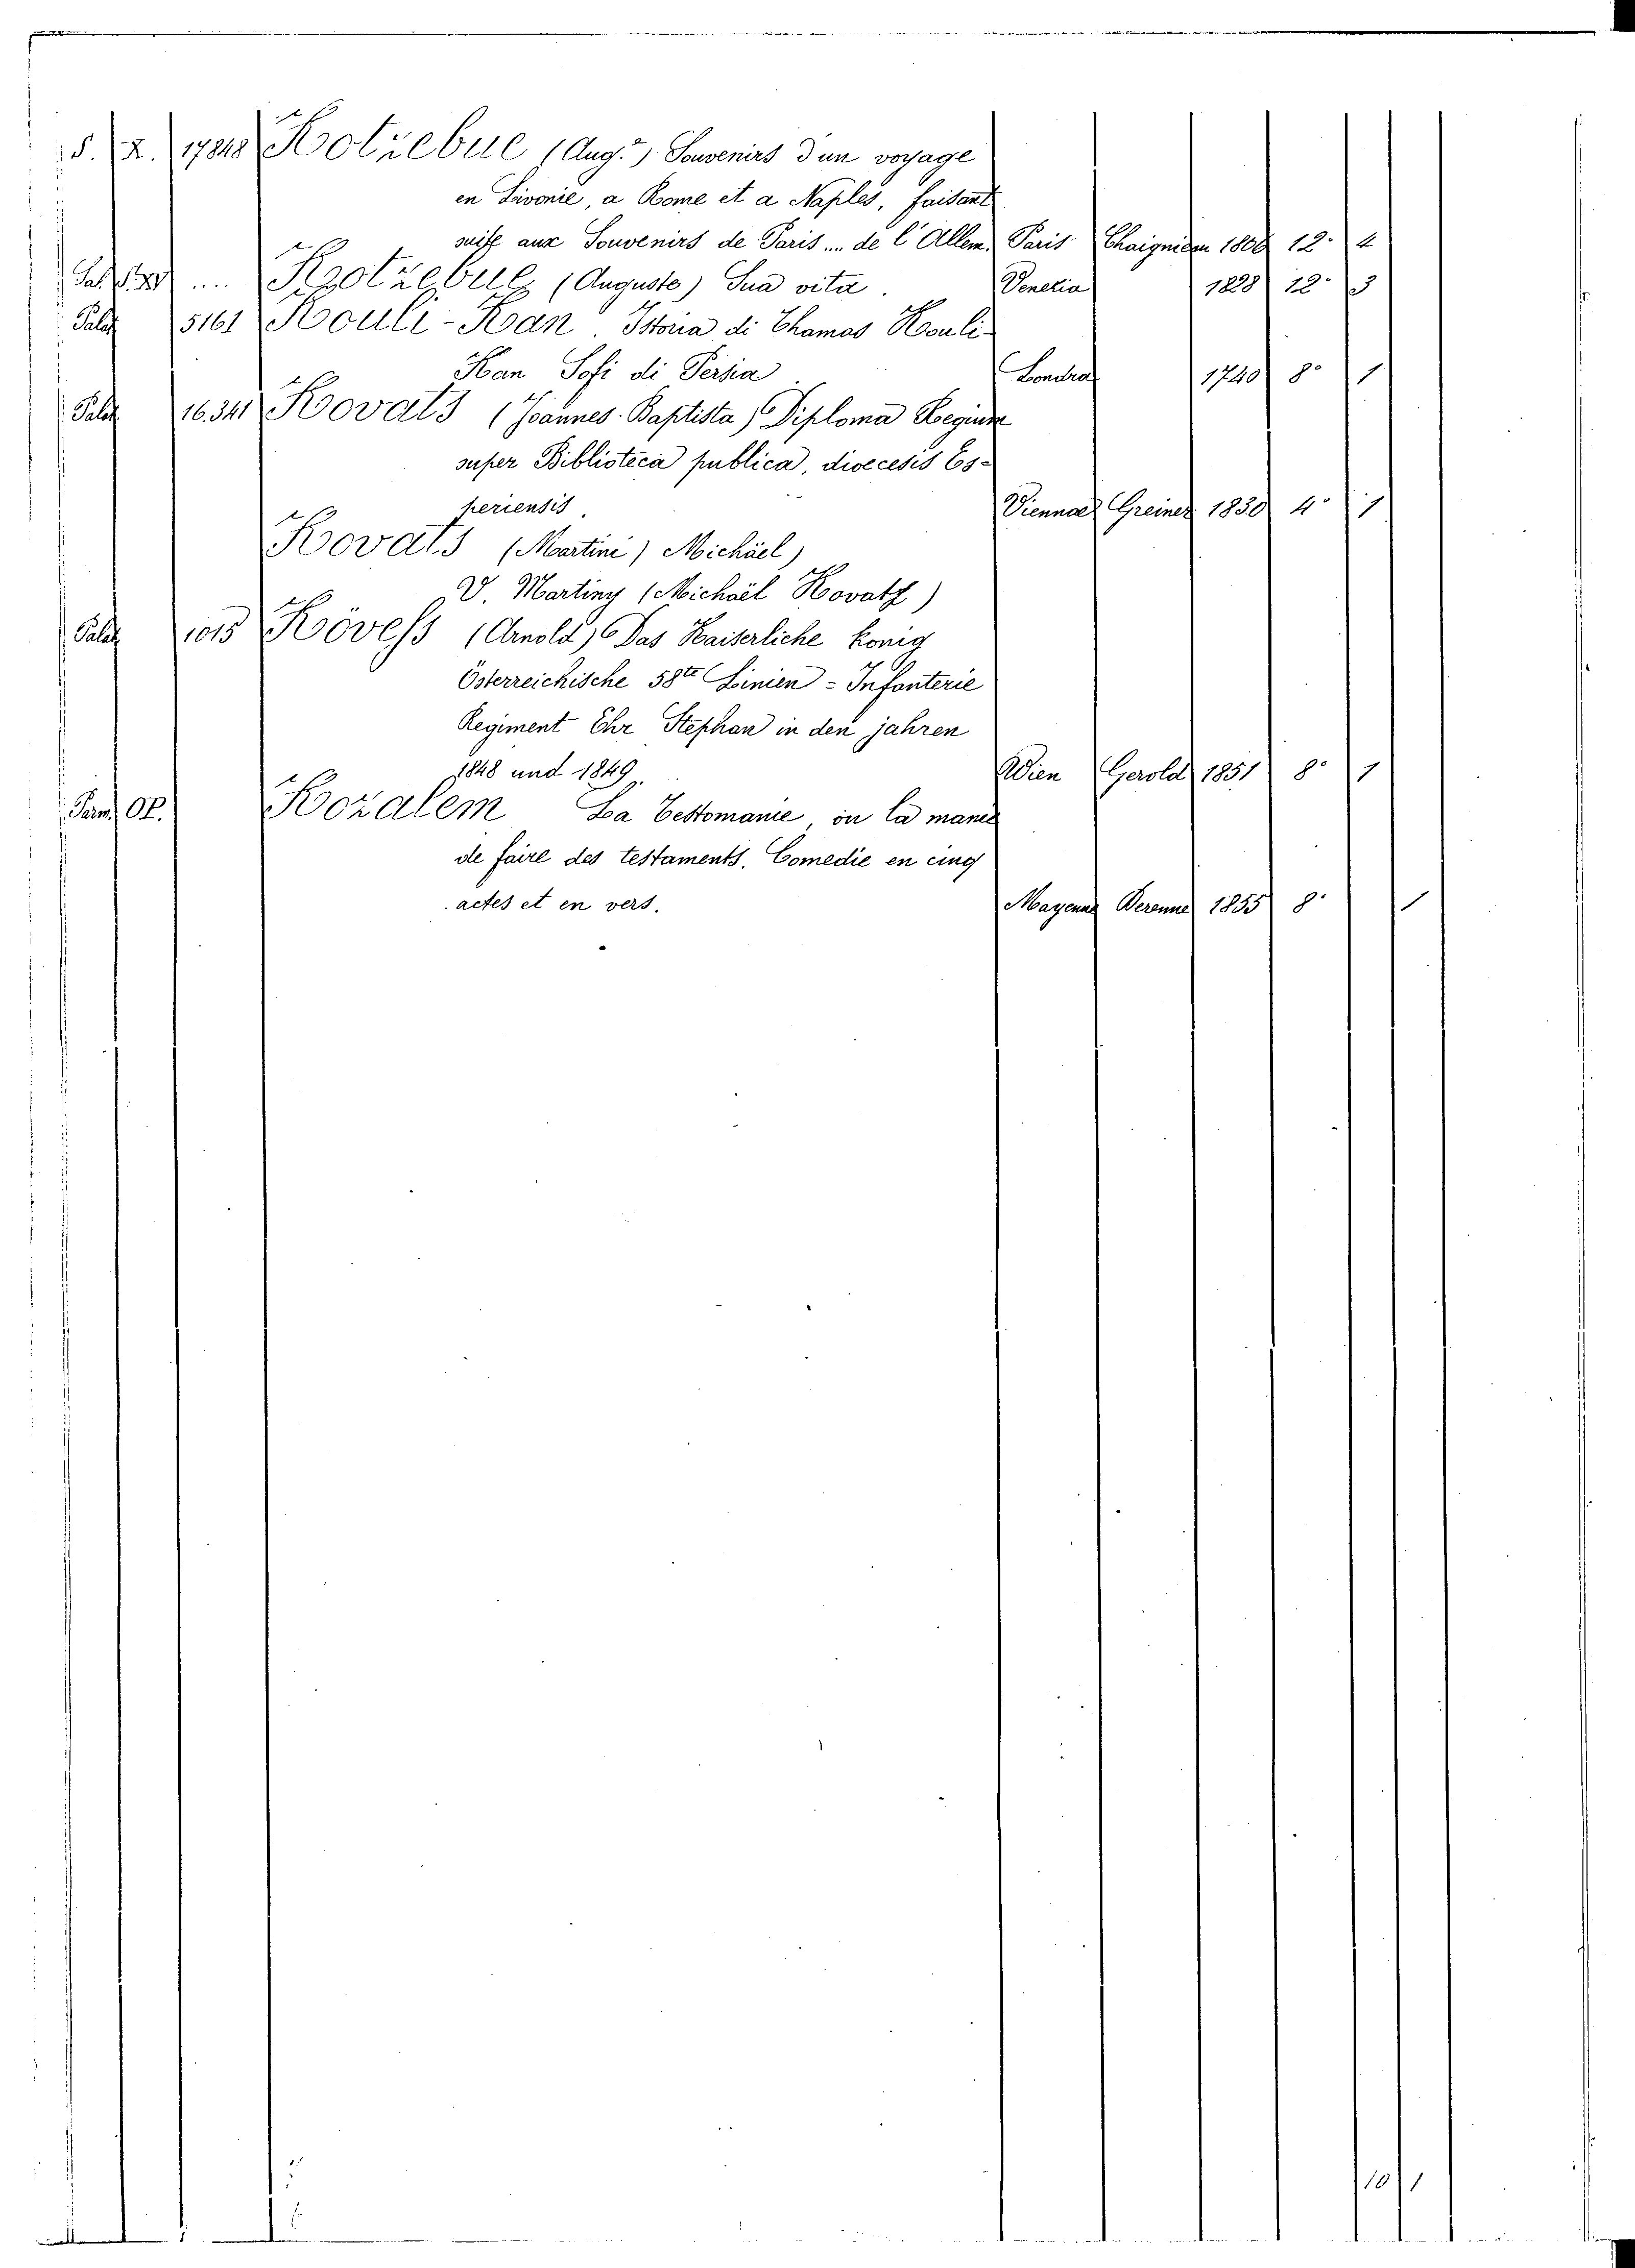 S. 2. 17848 Kotzebue (Aug.e) Souvenirs d'un voyage
en Livonie, a Rome et a Naples, faisant
suite aux Souvenirs de Paris ... de l'Allem. Paris 12° 4
.... Kotzebue (Auguste) Sua vita. Venezia 1828 12° 3
Palat 5161 Kouli-Kan. Istoria di Thamas Kouli-
Kan Sofi di Persia Londra 1740 8° 1
Palat 16.341 Kovats (Joannes-Baptista) Diploma Regium
super Biblioteca publica, dioecesis Es-
periensis. Viennae Greiner 1830 4° 1
Kovats (Martini) Michäel)
V. Martiny (Michäel Kovatz)
Palat 1015 Kövess (Arnold) Das Kaiserliche König
Österreichische 58te Linien = Infanterie
Regiment Ehr Stephan in den jahren
1848 und 1849. Wien Gerold 1851 8° 1
OP. Kozalem La Testomanie, ou la manie
de faire des testaments. Comedie en cinq
actes et en vers. Mayenne 1855 8° 1
10 1